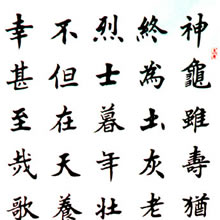 神龜雖壽猶
終為土灰老
烈士暮年壯
不但在天養
幸甚至哉歌